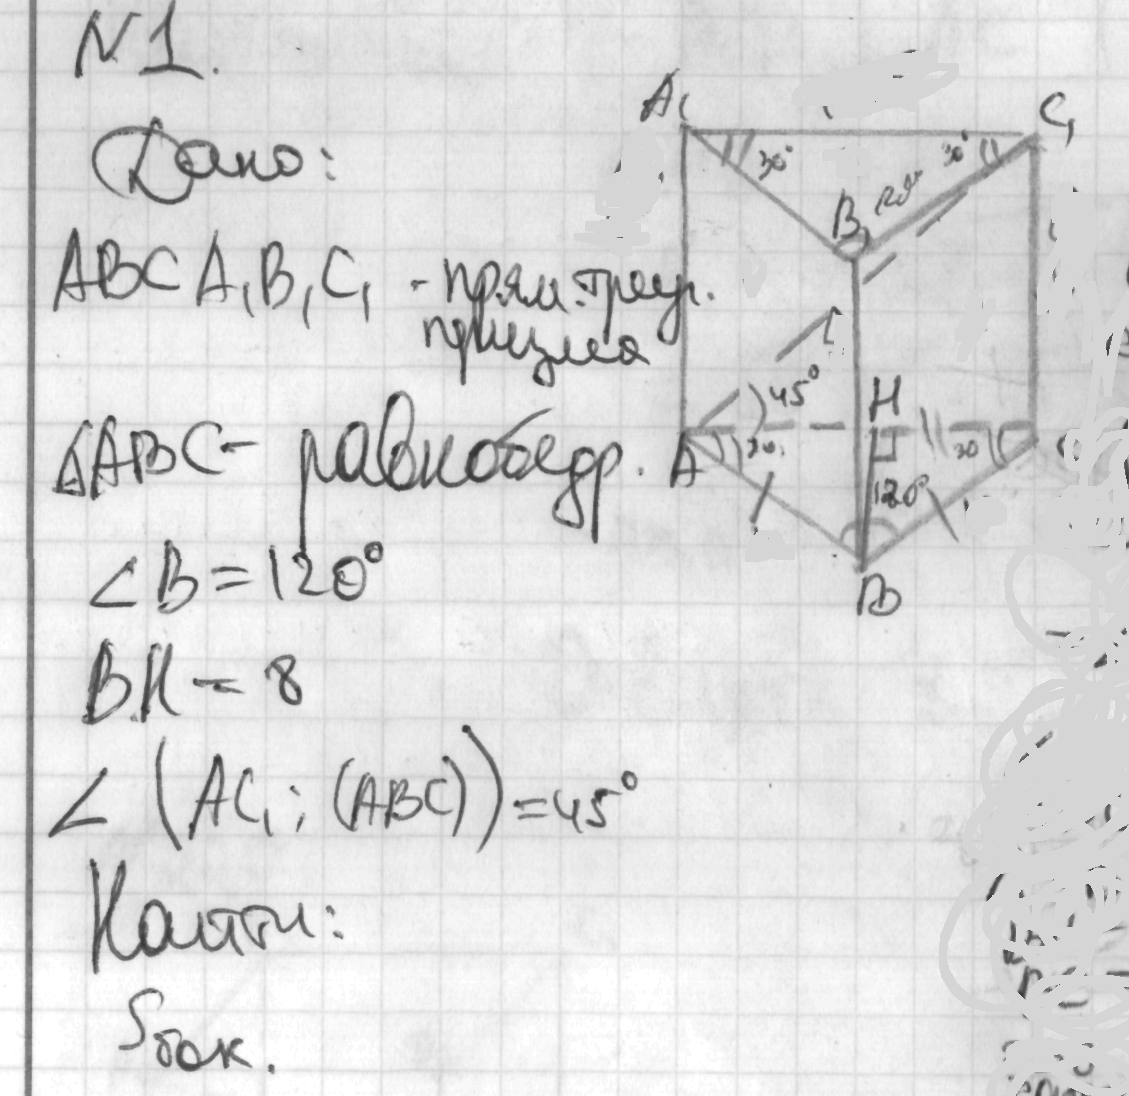 N1.
Дано:
ABCA₁B₁C₁ - прям. треуг.
призма
ΔABC - равнобедр.
∠B = 120°
BH = 8
∠(AC₁; (ABC)) = 45°
Найти:
Sбок.
A₁
C₁
30°
30°
B₁
120°
45°
H
A
30
30
120°
B